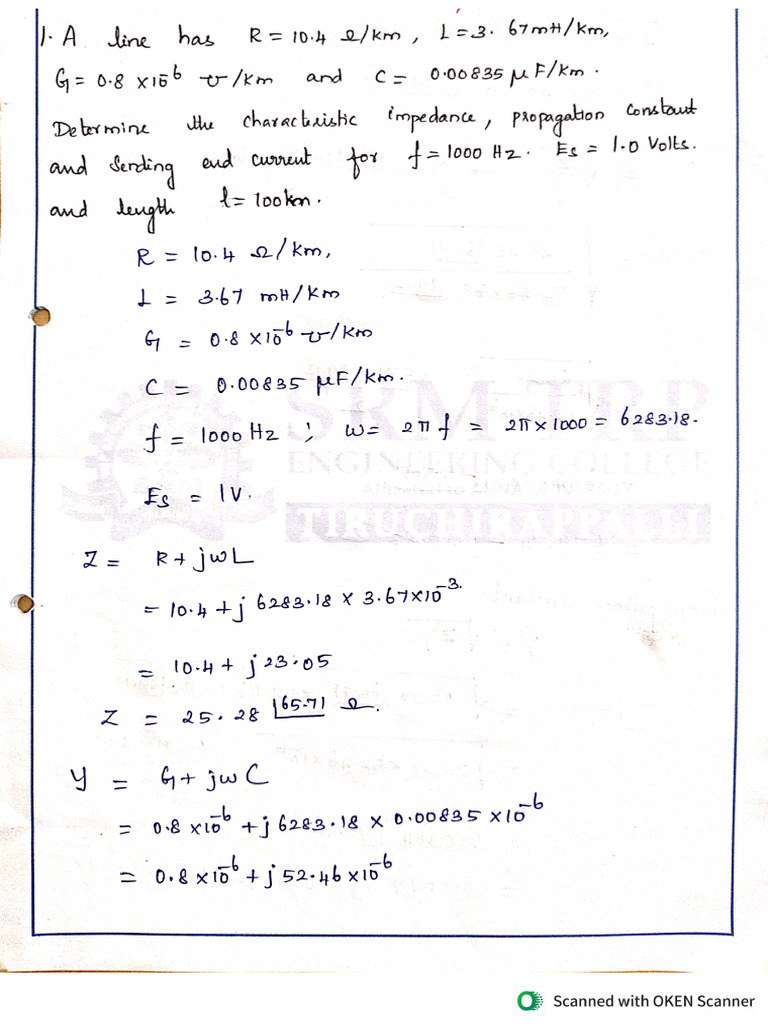 1. A line has R = 10.4 Ω/km, L = 3.67mH/km,
G = 0.8 ×10⁻⁶ ℧/km and C = 0.00835 μF/km.
Determine the characteristic impedance, propagation constant
and Sending end current for f = 1000 Hz. Es = 1.0 Volts.
and length l = 100km.
R = 10.4 Ω/km,
L = 3.67 mH/km
G = 0.8 ×10⁻⁶ ℧/km
C = 0.00835 μF/km.
SRM TRP
f = 1000 Hz ; ω = 2πf = 2π×1000 = 6283.18.
ENGINEERING COLLEGE
Es = 1V.
TIRUCHIRAPPALLI
Z = R + jωL
= 10.4 + j 6283.18 × 3.67×10⁻³.
= 10.4 + j23.05
Z = 25.28 ∠65.71 Ω.
Y = G + jωC
= 0.8 ×10⁻⁶ + j 6283.18 × 0.00835 ×10⁻⁶
= 0.8 ×10⁻⁶ + j 52.46 ×10⁻⁶
Scanned with OKEN Scanner